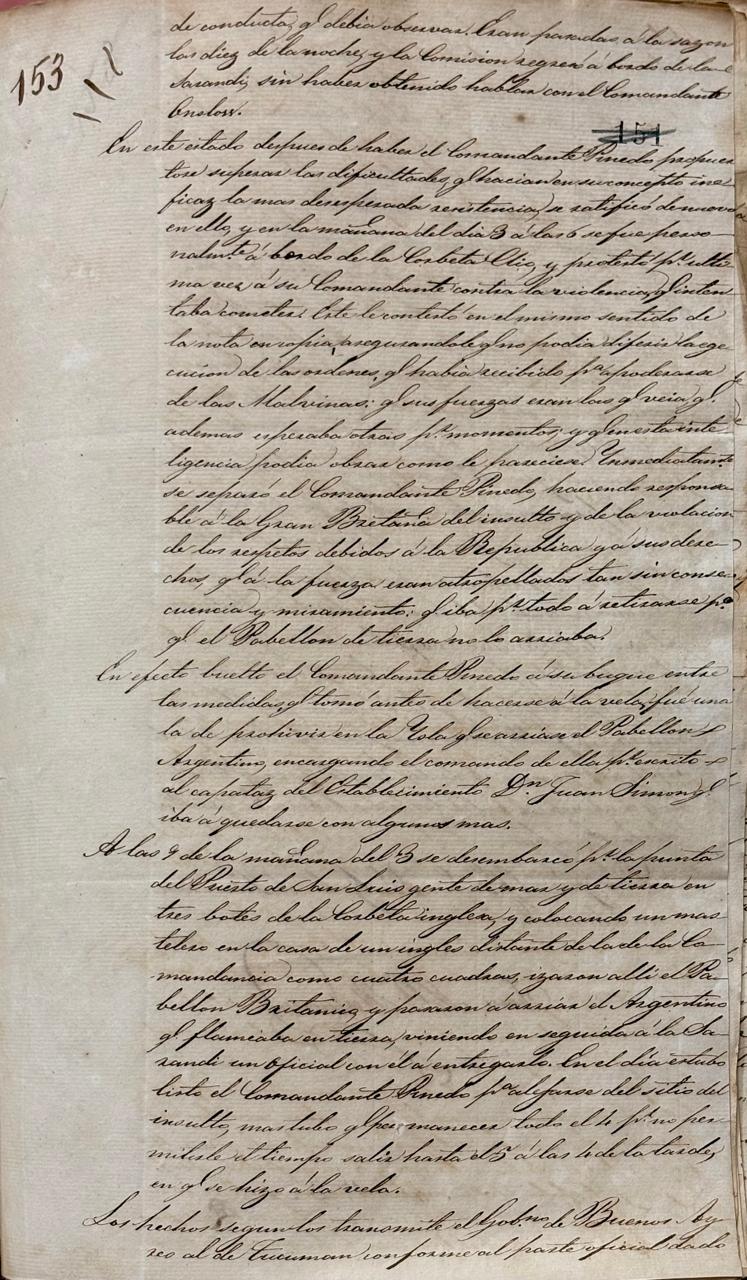 153
de conducta, q.^e debia observar. Eran pasadas á la sazon
las diez de la noche, y la Comision regresó a bordo de la
Sarandi, sin haber obtenido hablar con el Comandante
Onslow.
151
En este estado despues de haber el Comandante Pinedo propues
tose superar las dificultades, q.^e hacian en su concepto ine
ficaz la mas desesperada resistencia, se ratificó de nuevo
en ello, y en la mañana del dia 3 á las 6 se fue perso
nalm.^te á bordo de la Corbeta Clio, y protestó p.^r ulti
ma vez á su Comandante contra la violencia, q.^e inten
taba cometer. Este le contestó en el mismo sentido de
la nota en copia, asegurandole q.^e no podia diferir la ege
cucion de las ordenes, q.^e habia recibido p.^a apoderarse
de las Malvinas: q.^e sus fuerzas eran las q.^e veia, q.^e
ademas esperaba otras p.^r momentos; y q.^e en esta inte
ligencia podia obrar como le pareciese. Ynmediatam.^te
se separó el Comandante Pinedo, haciendo responsa
ble á la Gran Bretaña del insulto y de la violacion
de los respetos debidos á la Republica y a sus dere
chos, q.^e á la fuerza eran atropellados tan sin conse
cuencia y miramiento: q.^e iba p.^r todo á retirarse p.^o
q.^e el Pabellon de tierra no lo arriaba.
En efecto buelto el Comandante Pinedo á su buque entre
las medidas q.^e tomó antes de hacerse á la vela, fué una
la de prohivir en la Ysla q.^e se arriase el Pabellon
Argentino, encargando el comando de ella p.^r escrito
al capataz del Establecimiento D.^n Juan Simon q.^e
iba á quedarse con algunos mas.
A las 9 de la mañana del 3 se desembarco p.^r la punta
del Puerto de San Luis gente de mar y de tierra en
tres botes de la Corbeta inglesa, y colocando un mas
telero en la casa de un ingles distante de la de la Co-
mandancia como cuatro cuadras, izaron alli el Pa-
bellon Britanico, y pasaron á arriar el Argentino
q.^e flameaba en tierra, viniendo en seguida á la Sa-
randi un oficial con él á entregarlo. En el día estubo
listo el Comandante Pinedo p.^a alejarse del sitio del
insulto, mas tubo q.^e permanecer todo el 4 p.^r no per-
mitirle el tiempo salir hasta el 5 á las 4 de la tarde,
en q.^e se hizo á la vela.
Los hechos segun los transmite el Gob.^no de Buenos Ay-
res al de Tucuman conforme al parte oficial dado